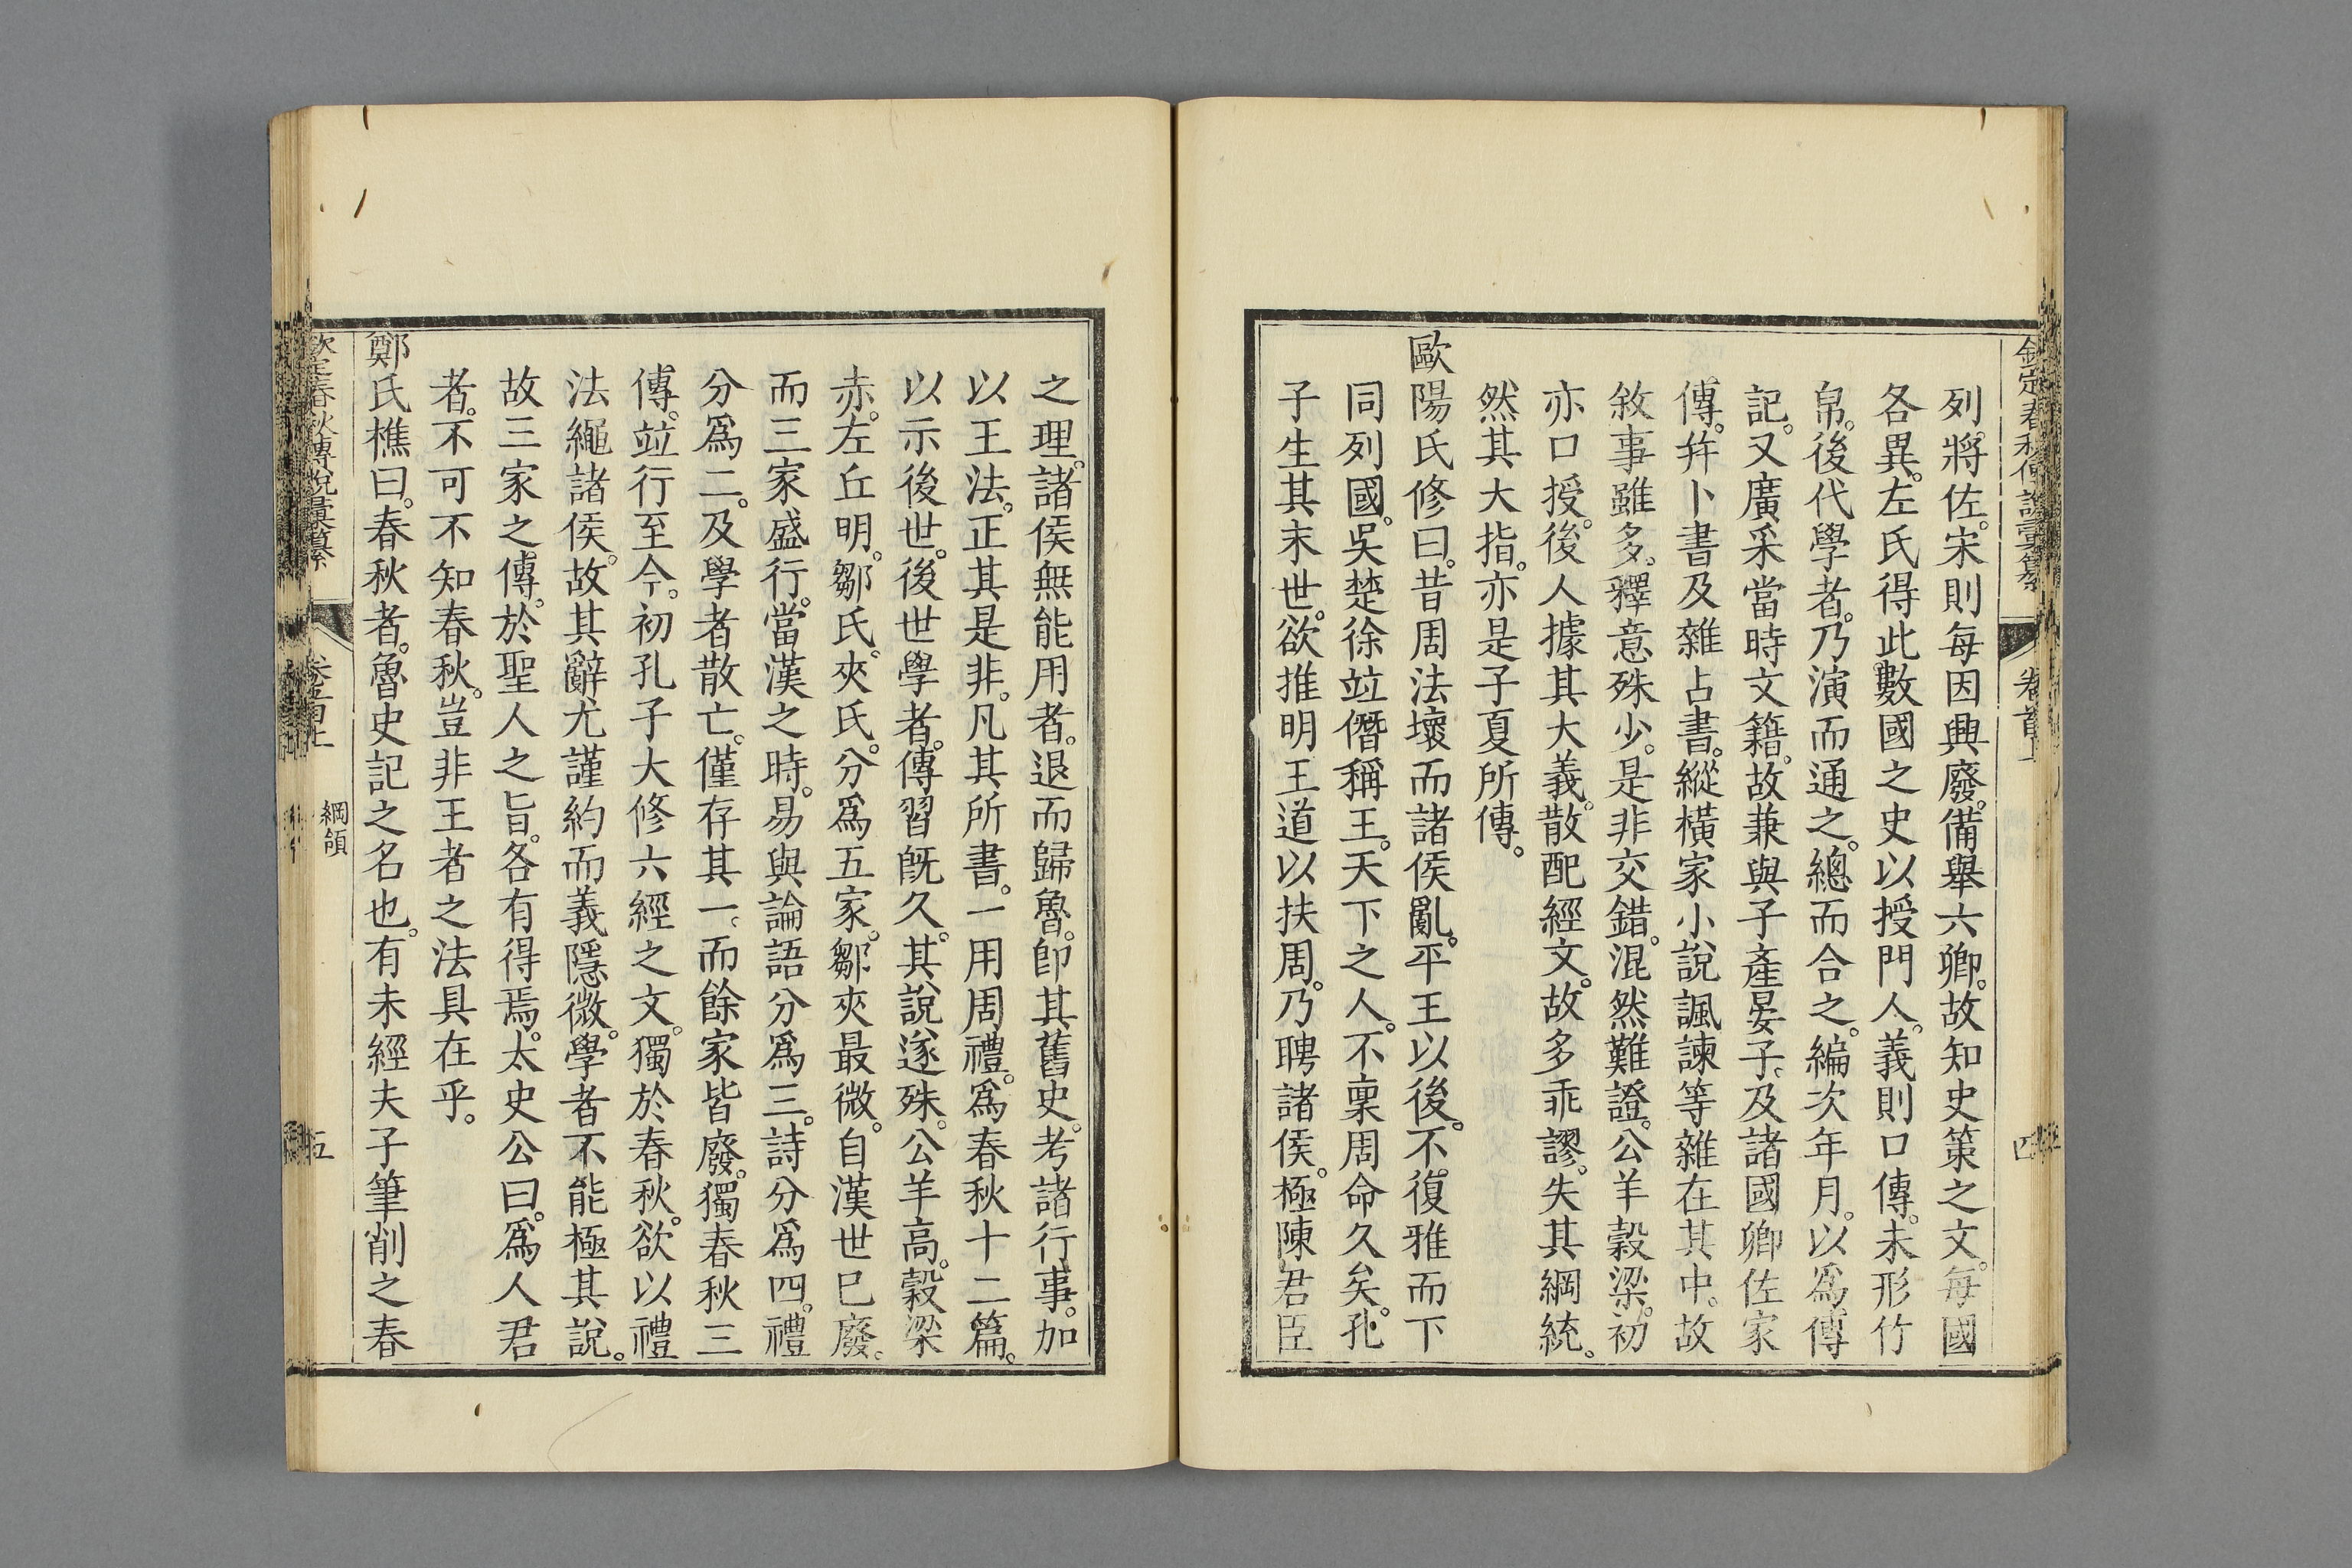 欽定春秋傳說彙纂 卷首上 四
列將佐。宋則每因興廢。備舉六卿。故知史策之文。每國
各異。左氏得此數國之史以授門人。義則口傳。未形竹
帛。後代學者。乃演而通之。總而合之。編次年月。以為傳
記。又廣采當時文籍。故兼與子產晏子。及諸國卿佐家
傳。幷卜書及雜占書。縱橫家小說諷諫等雜在其中。故
敘事雖多。釋意殊少。是非交錯。混然難證。公羊穀梁。初
亦口授。後人據其大義。散配經文。故多乖謬。失其綱統。
然其大指。亦是子夏所傳。
歐陽氏修曰。昔周法壞而諸侯亂。平王以後。不復雅而下
同列國。吳楚徐竝僭稱王。天下之人。不稟周命久矣。孔
子生其末世。欲推明王道以扶周。乃聘諸侯。極陳君臣
之理。諸侯無能用者。退而歸魯。卽其舊史。考諸行事。加
以王法。正其是非。凡其所書。一用周禮。爲春秋十二篇。
以示後世。後世學者。傳習旣久。其說遂殊。公羊高。穀梁
赤。左丘明。鄒氏。夾氏。分爲五家。鄒夾最微。自漢世巳廢。
而三家盛行。當漢之時。易與論語分爲三。詩分爲四。禮
分爲二。及學者散亡。僅存其一。而餘家皆廢。獨春秋三
傳。竝行至今。初孔子大修六經之文。獨於春秋。欲以禮
法繩諸侯。故其辭尤謹約而義隱微。學者不能極其說。
故三家之傳。於聖人之旨。各有得焉。太史公曰。爲人君
者。不可不知春秋。豈非王者之法具在乎。
鄭氏樵曰。春秋者。魯史記之名也。有未經夫子筆削之春
欽定春秋傳說彙纂 卷首上 綱領 五